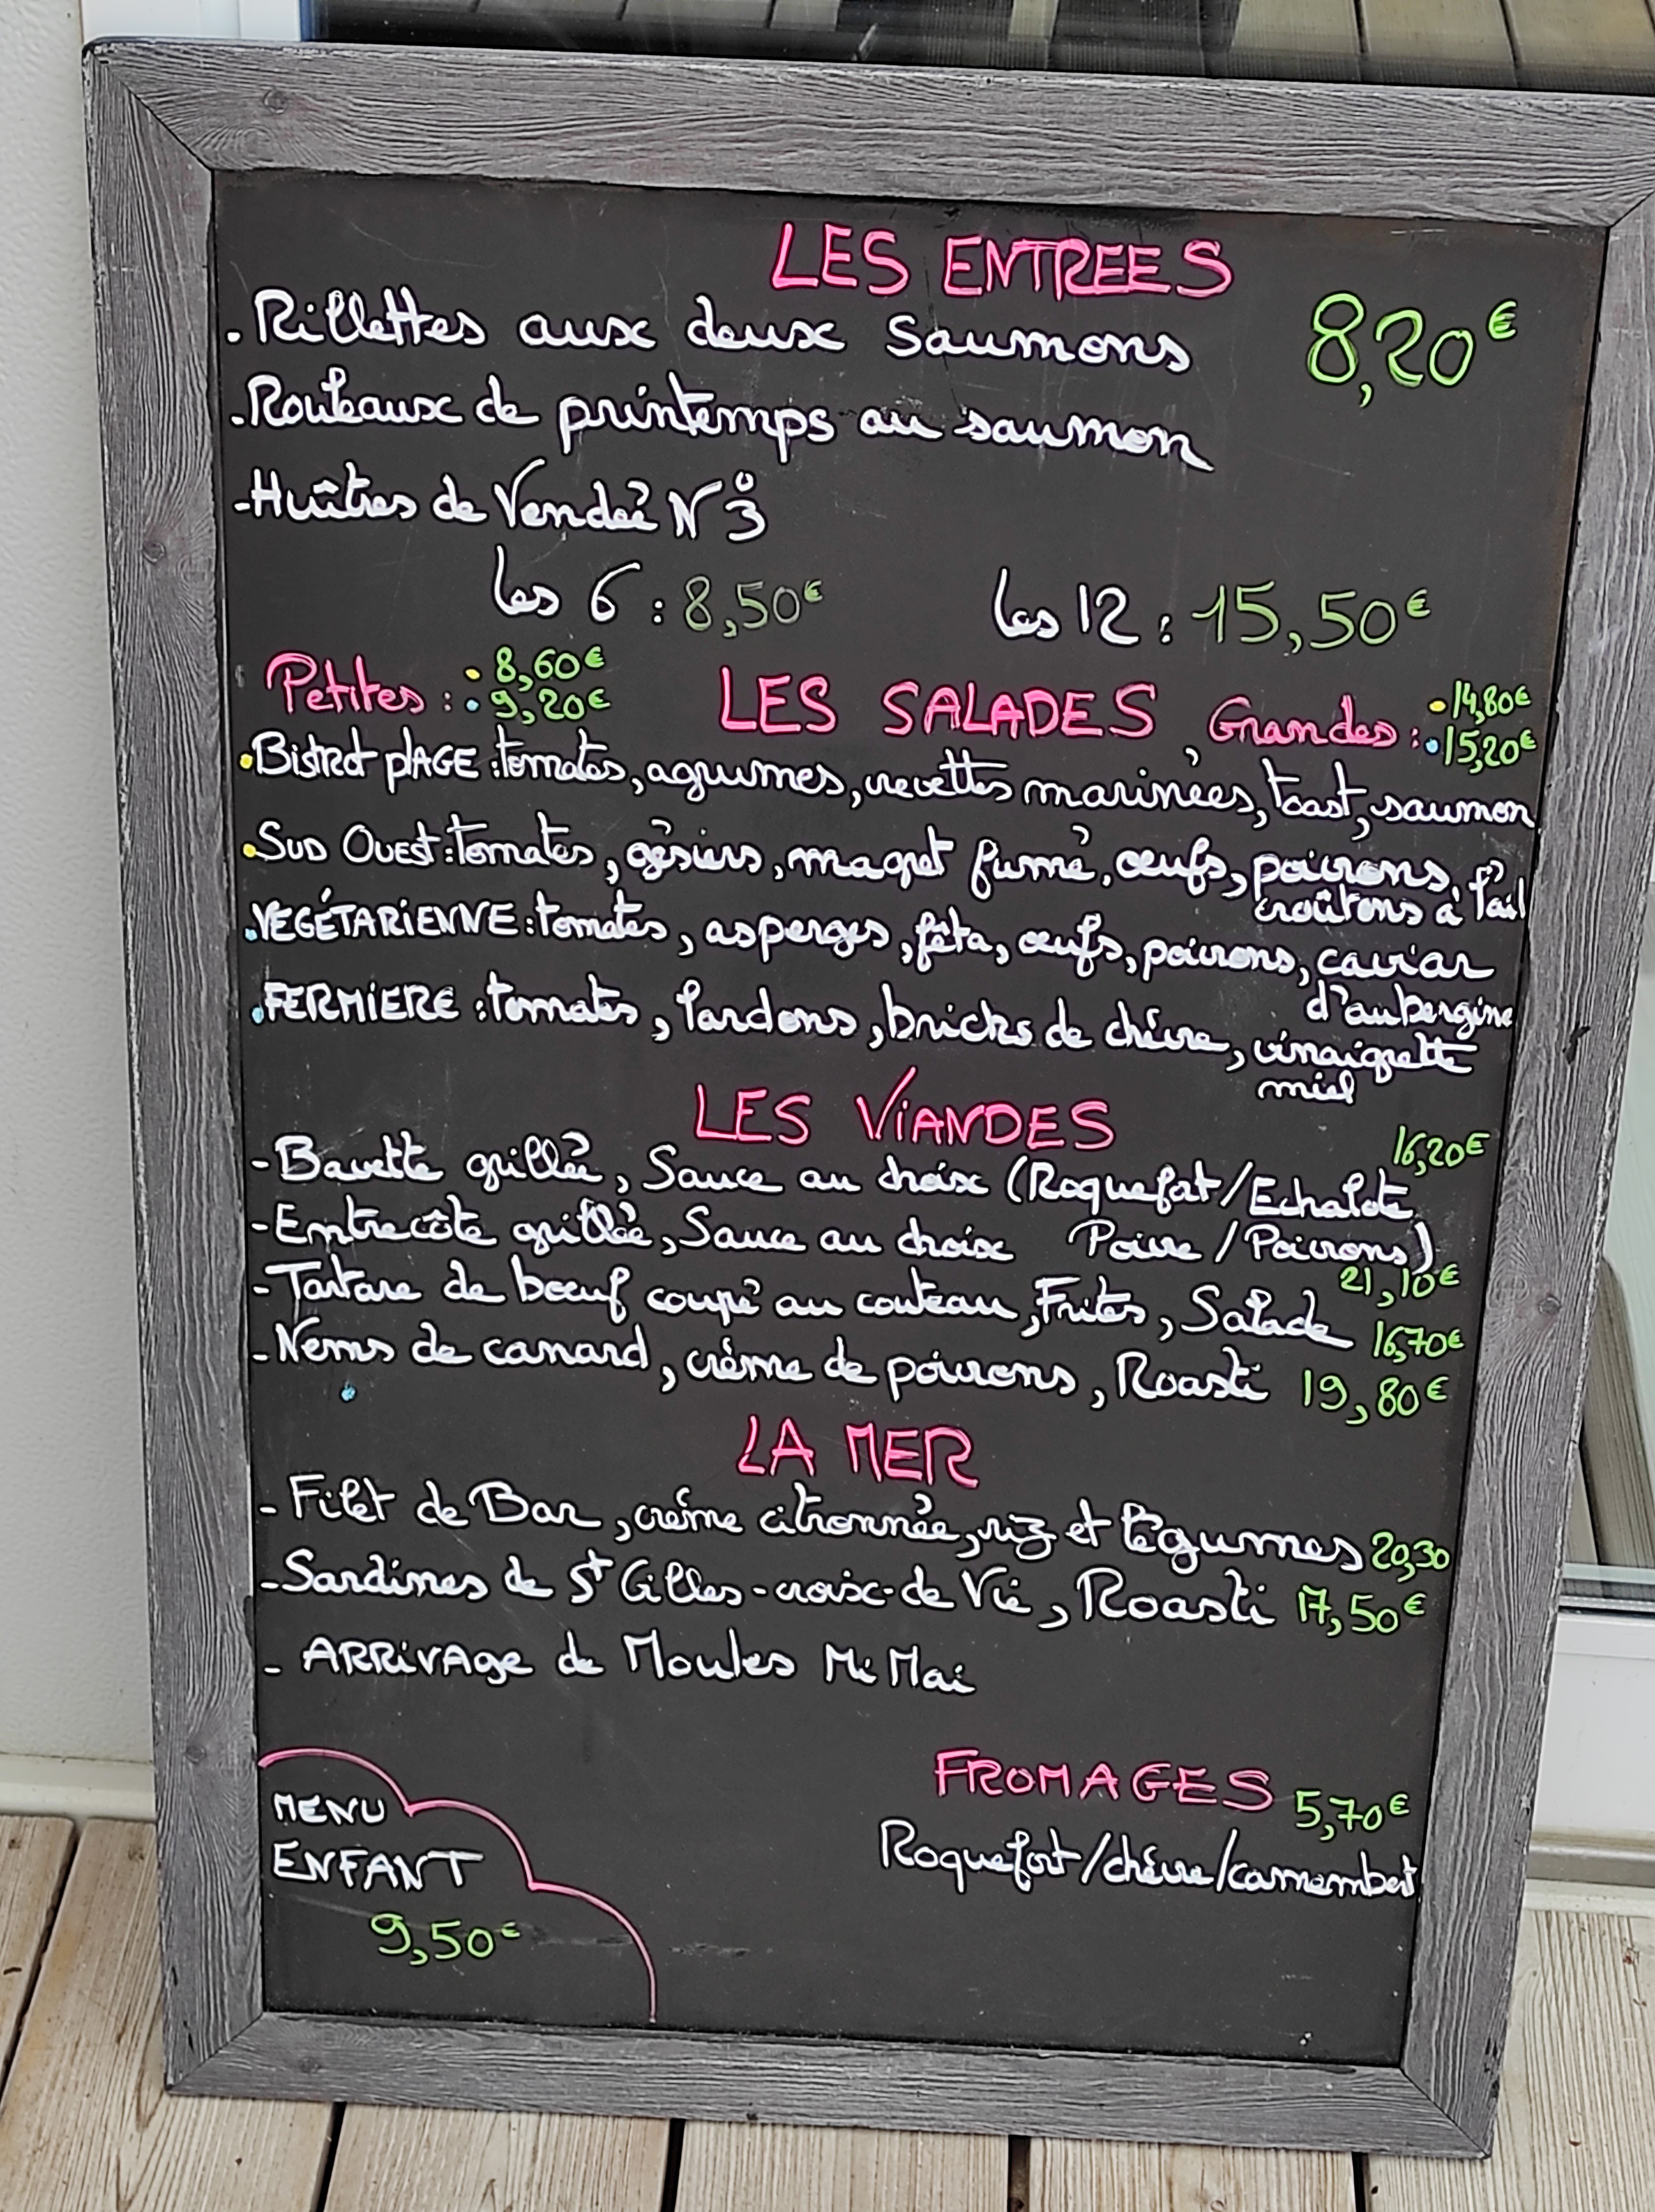 LES ENTREES
. Rillettes aux deux Saumons 8,20€
. Rouleaux de printemps au saumon
- Huîtres de Vendée N°3
les 6 : 8,50€ les 12 : 15,50€
Petites : • 8,60€ • 9,20€ LES SALADES Grandes : • 14,80€ • 15,20€
• Bistrot plAGE : tomates, agrumes, crevettes marinées, toast, saumon
• SUD OUEST : tomates, gésiers, magret fumé, œufs, poivrons,
croûtons à l'ail
• VEGÉTARiENNE : tomates, asperges, fêta, œufs, poivrons, caviar
d'aubergine
• FERMIERE : tomates, lardons, bricks de chévre, vinaigrette
miel
LES ViANDES
- Bavette grillée, Sauce au choix (Roquefort/Echalote 16,20€
- Entrecôte grillée, Sauce au choix Poivre/Poivrons)
21,10€
- Tartare de boeuf coupé au couteau, Frites, Salade 16,70€
- Nems de canard, crème de poivrons, Roasti 19,80€
LA MER
- Filet de Bar, créme citronnée, riz et légumes 20,30
- Sardines de St Gilles-croix-de Vie, Roasti 17,50€
- ARRivAge de Moules Mi Mai
FROMAGES 5,70€
Roquefort/chévre/camembert
MENU
ENFANT
9,50€